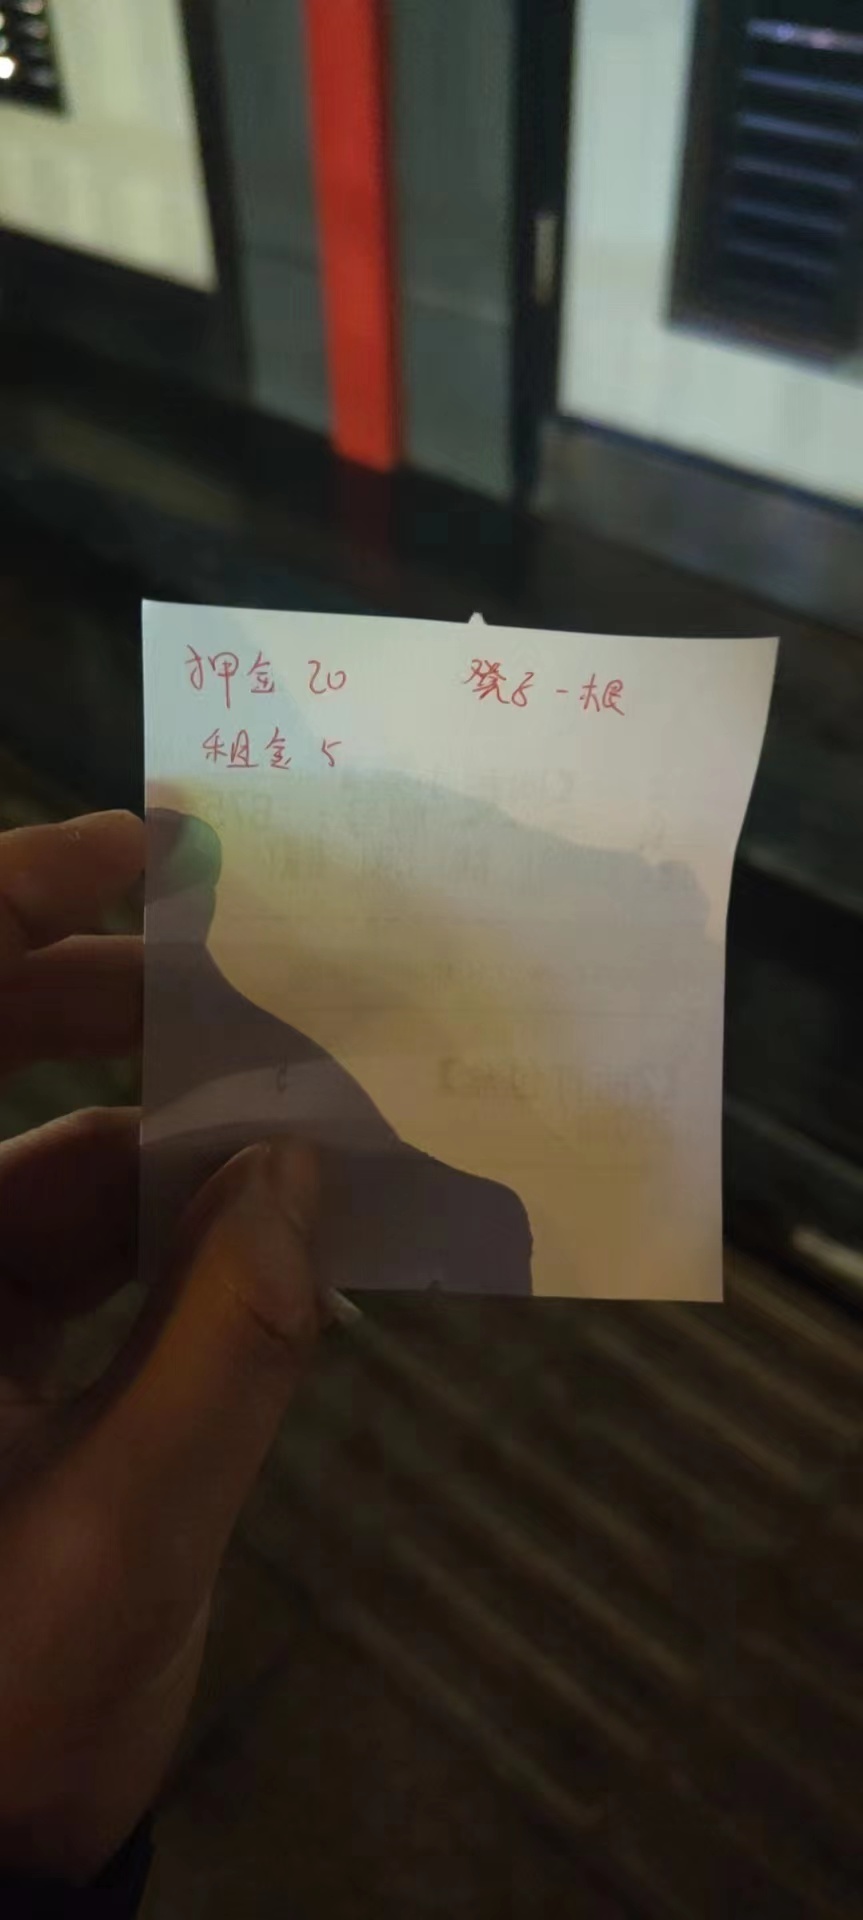 押金 20 凳子一根
租金 5